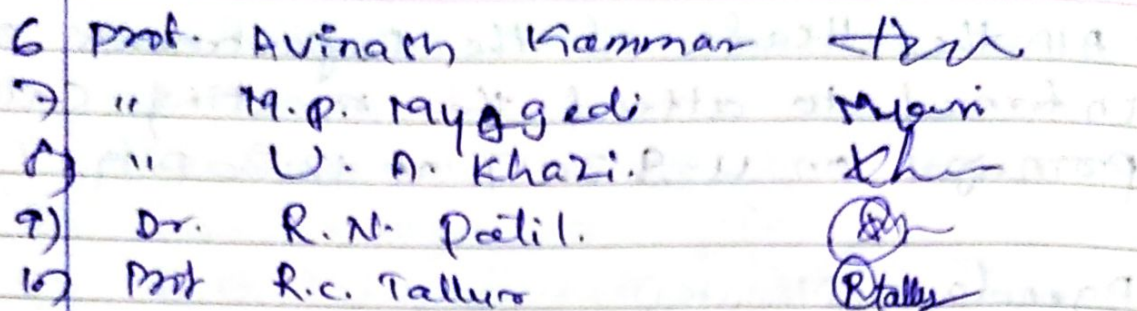 6 Prof. Avinash Kammar
7) " M.P. Myageri
8) " U. A. Khazi.
9) Dr. R.N. Patil.
10) Prof R.C. Tallur Rtallur